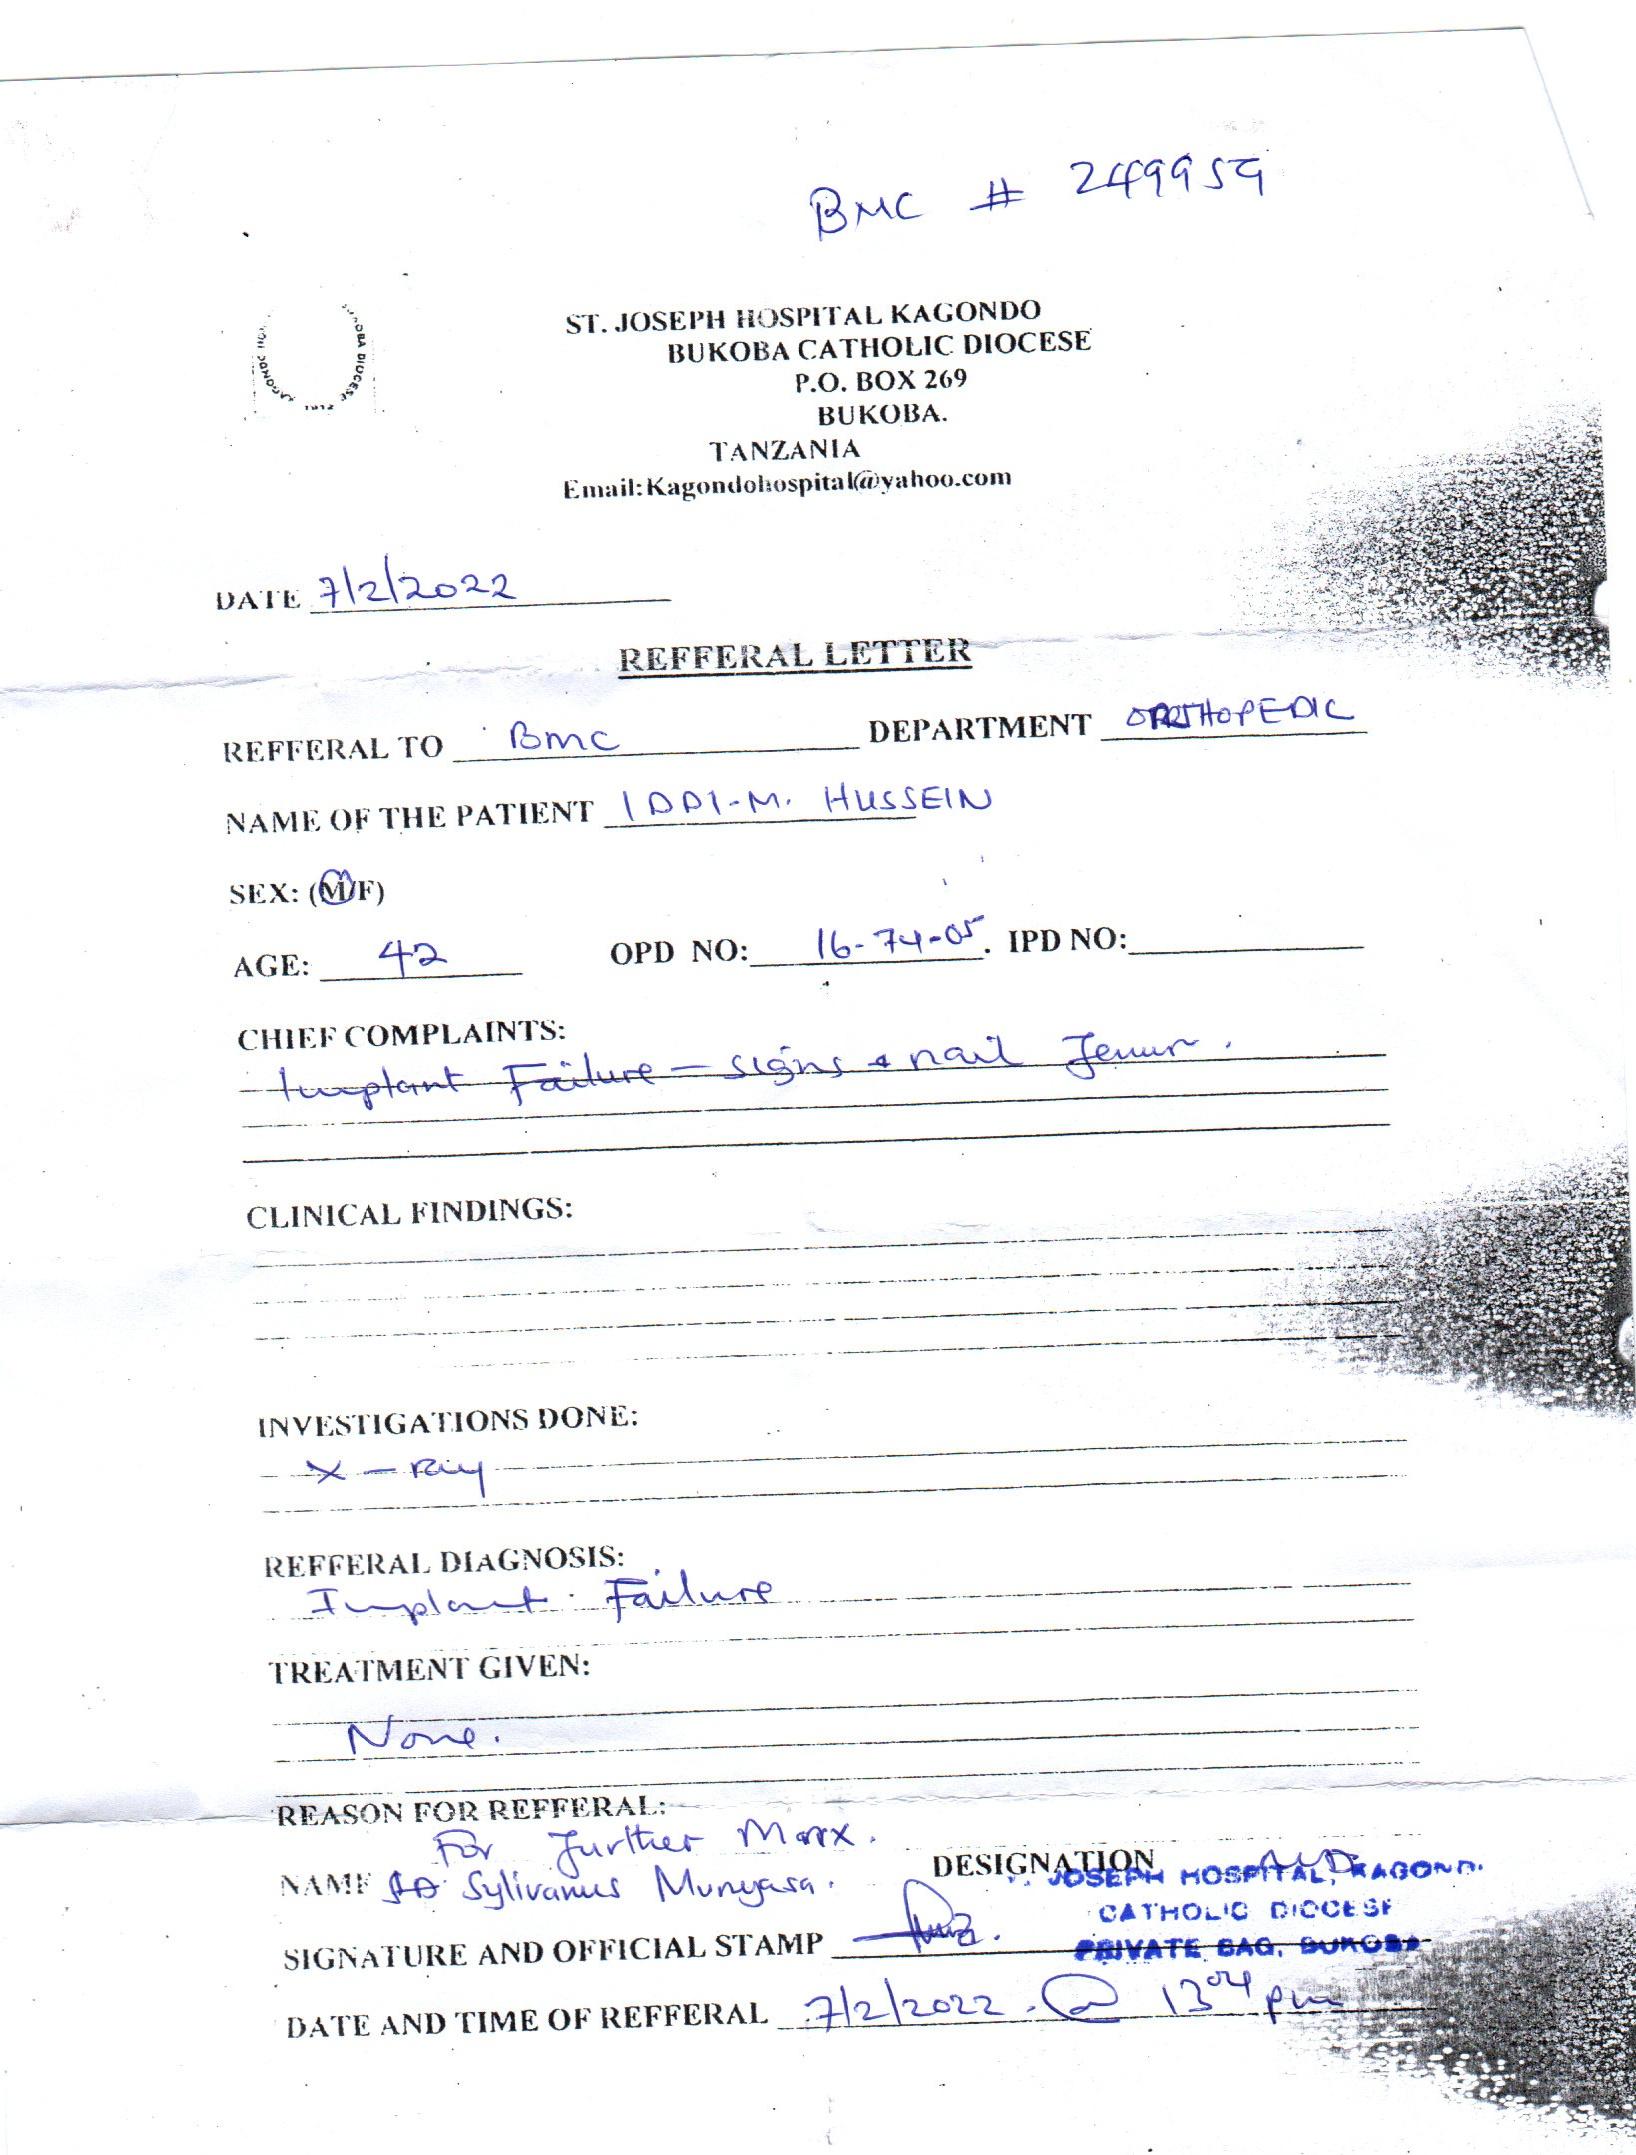 BMC # 249959
ST. JOSEPH HOSPITAL KAGONDO
BUKOBA CATHOLIC DIOCESE
P.O. BOX 269
BUKOBA.
TANZANIA
Email:Kagondohospital@yahoo.com
DATE 7/2/2022
REFFERAL LETTER
REFFERAL TO BMC DEPARTMENT ORTHOPEDIC
NAME OF THE PATIENT IDDI-M. HUSSEIN
SEX: (M/F)
AGE: 42 OPD NO: 16-74-05. IPD NO:
CHIEF COMPLAINTS:
Implant Failure – signs nail femur.
CLINICAL FINDINGS:
INVESTIGATIONS DONE:
X – ray
REFFERAL DIAGNOSIS:
Implant Failure
TREATMENT GIVEN:
None.
REASON FOR REFFERAL:
For further
NAME Sylivanus Munyasa. DESIGNATION MD
JOSEPH HOSPITAL, KAGOND
CATHOLIC DIOCESE
SIGNATURE AND OFFICIAL STAMP PRIVATE BAG, BUKOBA
DATE AND TIME OF REFFERAL 7/2/2022. @ 13 04 pm